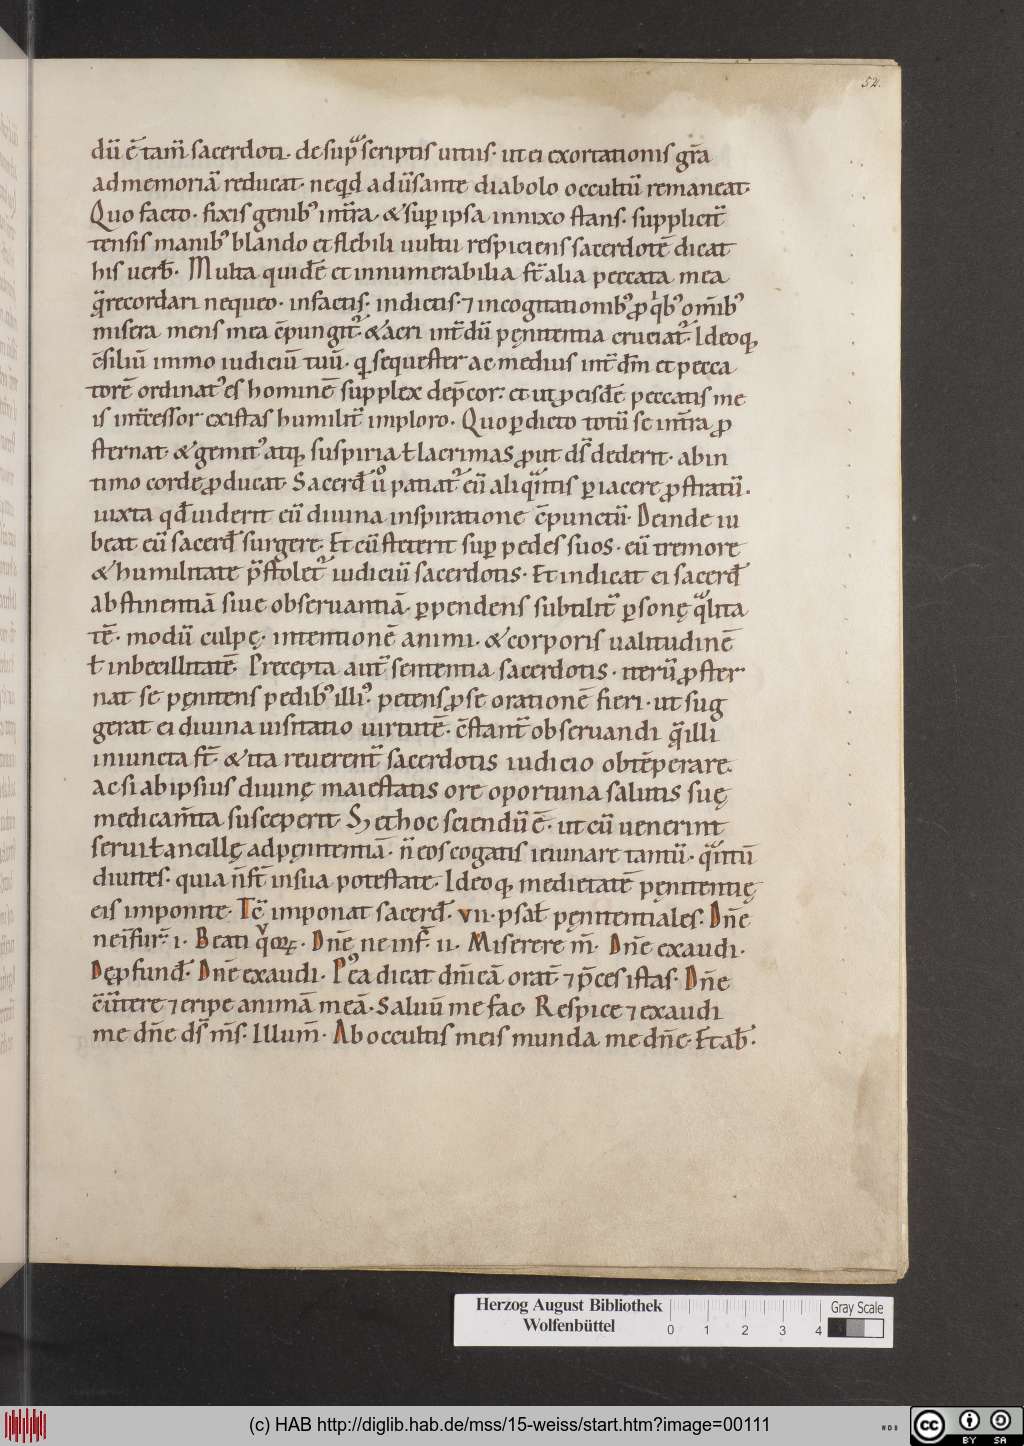 52.
dū ē tam̄ sacerdoti. de sup scriptis uitiis. ut ei exortationis gr̄a
ad memoriā reducat. ne qd aduersante diabolo occultū remaneat.
Quo facto. fixis genib' in tr̄a. & sup ipsa innixo stans. supplicit̄
tensis manib' blando et flebili uultu respiciens sacerdotē dicat
his uerb̄. Multa quidē et innumerabilia st̄ alia peccata mea
q̄ recordari nequeo. in factis. in dictis. ⁊ in cogitationib' ꝓ qⁱb' om̄ib'
misera mens mea c̄pungit̄. & acri int̄dū pęnitentia cruciat̄. Ideoq,
c̄siliū immo iudiciū tuū. q sequester ac medius int̄ dm̄ et pecca
torē ordinat' es hominē supplex dep̄cor. et ut ꝓ eisdē peccatis me
is int̄cessor existas humilit̄ imploro. Quo ꝑ dicto totū se in tr̄a ꝓ
sternat. & gemit' atq, suspiria ł lacrimas ꝓut ds̄ dederit. ab in
timo corde ꝓducat. Sacerd̄ u° patiat̄ eū aliqntis ꝑ iacere ꝓstratū.
iuxta qd̄ uiderit eū diuina inspiratione c̄punctū. Deinde iu
beat eū sacerd̄ surgere. Et cū steterit sup pedes suos. cū tremore
& humilitate p̄stolet̄ iudiciū sacerdotis. Et indicat ei sacerd̄
abstinentiā siue obseruantiā. ꝑpendens subtilit̄ ꝑsonę qlita
tē. modū culpę. intentionē animi. & corporis ualitudinē
ł inbecillitatē. Precepta aut̄ sententia sacerdotis. iterū ꝓster
nat se pęnitens pedib' illi'. petens ꝓ se orationē fieri. ut sug
gerat ei diuina uisitatio uirtutē. c̄stant̄ obseruandi q̄ illi
iniuncta st̄. & ita reuerent̄ sacerdotis iudicio obtēperare.
ac si ab ipsius diuinę maiestatis ore oportuna salutis suę
medicam̄ta susceperit. S; et hoc sciendū ē. ut cū uenerint
serui ł ancillę ad pęnitentiā. n̄ eos cogatis ieiunare tantū. qntū
diuites. quia n̄ st̄ in sua potestate. Ideoq, medietatē pęnitentię
eis imponite. Tc̄ imponat sacerd̄. vii. psal̄ pęnitentiales. Dn̄e
ne in fur̄. i. Beati qoꝝ. Dn̄e ne in f̄. ii. Miserere m̄. Dn̄e exaudi.
Dę ꝓfund̄. Dn̄e exaudi. P'ea dicat dn̄icā orat̄. ⁊ p̄ces istas. Dn̄e
c̄u̅tere ⁊ eripe animā meā. Saluū me fac. Respice ⁊ exaudi
me dn̄e ds̄ m̄s. Illum̄. Ab occultis meis munda me dn̄e. Et ab̄.
Herzog August Bibliothek
Wolfenbüttel
0 1 2 3 4
Gray Scale
(c) HAB http://diglib.hab.de/mss/15-weiss/start.htm?image=00111
WDB
cc BY SA